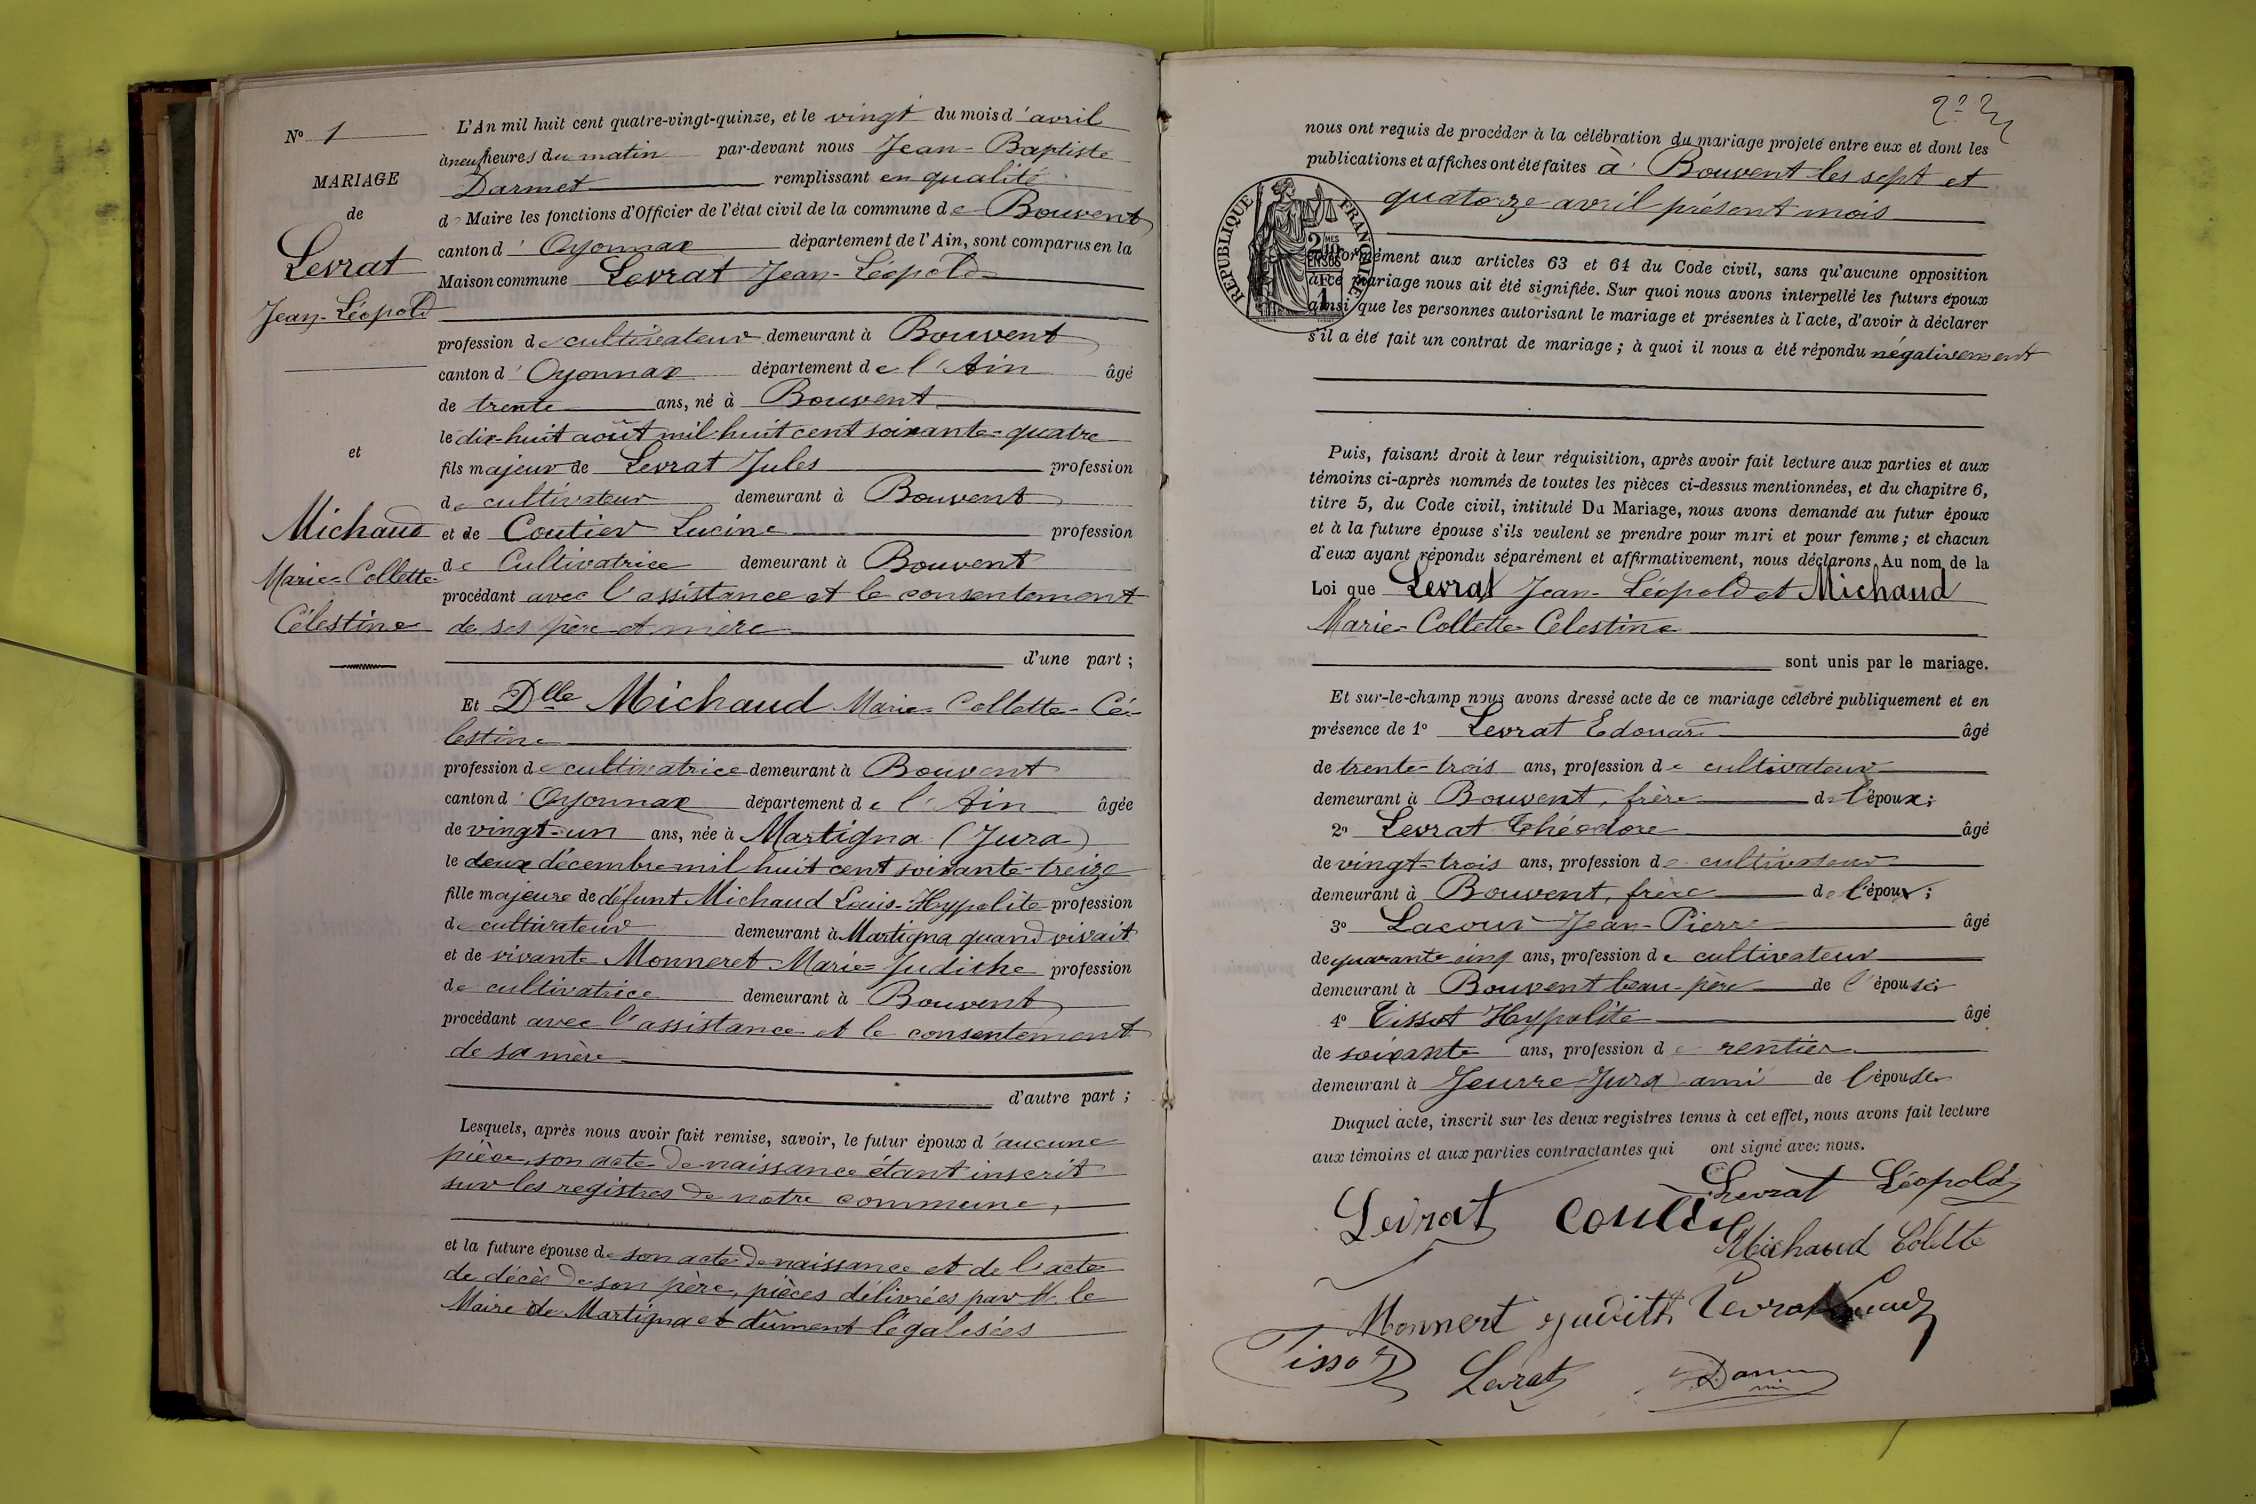 N° 1
MARIAGE
de
Levrat
Jean-Léopold
et
Michaud
Marie-Collette-
Célestine
L'An mil huit cent quatre-vingt-quinze, et le vingt du mois d'avril
à neuf heures du matin par-devant nous Jean-Baptiste
Darmet remplissant en qualité
de Maire les fonctions d'Officier de l'état civil de la commune de Bouvent
canton d'Oyonnax département de l'Ain, sont comparus en la
Maison commune Levrat Jean-Léopold
profession de cultivateur demeurant à Bouvent
canton d'Oyonnax département de l'Ain âgé
de trente ans, né à Bouvent
le dix-huit août mil huit cent soixante-quatre
fils majeur de Levrat Jules profession
de cultivateur demeurant à Bouvent
et de Coutier Lucine profession
de Cultivatrice demeurant à Bouvent
procédant avec l'assistance et le consentement
de ses père et mère
d'une part ;
Et Dlle Michaud Marie-Collette-Cé-
lestine
profession de cultivatrice demeurant à Bouvent
canton d'Oyonnax département de l'Ain âgée
de vingt-un ans, née à Martigna (Jura)
le deux décembre mil huit cent soixante-treize
fille majeure de défunt Michaud Louis-Hypolite profession
de cultivateur demeurant à Martigna quand vivait
et de vivante Monneret Marie-Judithe profession
de cultivatrice demeurant à Bouvent
procédant avec l'assistance et le consentement
de sa mère
d'autre part ;
Lesquels, après nous avoir fait remise, savoir, le futur époux d'aucune
pièce, son acte de naissance étant inscrit
sur les registres de notre commune,
et la future épouse de son acte de naissance et de l'acte
de décès de son père, pièces délivrées par M. le
Maire de Martigna et dûment légalisées
nous ont requis de procéder à la célébration du mariage projeté entre eux et dont les
publications et affiches ont été faites à Bouvent les sept et
quatorze avril présent mois
RÉPUBLIQUE FRANÇAISE
conformément aux articles 63 et 64 du Code civil, sans qu'aucune opposition
à ce mariage nous ait été signifiée. Sur quoi nous avons interpellé les futurs époux
ainsi que les personnes autorisant le mariage et présentes à l'acte, d'avoir à déclarer
s'il a été fait un contrat de mariage ; à quoi il nous a été répondu négativement
Puis, faisant droit à leur réquisition, après avoir fait lecture aux parties et aux
témoins ci-après nommés de toutes les pièces ci-dessus mentionnées, et du chapitre 6,
titre 5, du Code civil, intitulé Du Mariage, nous avons demandé au futur époux
et à la future épouse s'ils veulent se prendre pour mari et pour femme ; et chacun
d'eux ayant répondu séparément et affirmativement, nous déclarons Au nom de la
Loi que Levrat Jean-Léopold et Michaud
Marie-Collette-Célestine
sont unis par le mariage.
Et sur-le-champ nous avons dressé acte de ce mariage célébré publiquement et en
présence de 1° Levrat Edouard âgé
de trente-trois ans, profession de cultivateur
demeurant à Bouvent, frère de l'époux ;
2° Levrat Théodore âgé
de vingt-trois ans, profession de cultivateur
demeurant à Bouvent, frère de l'époux ;
3° Lacour Jean-Pierre âgé
de quarante cinq ans, profession de cultivateur
demeurant à Bouvent beau-père de l'épouse
4° Tissot Hypolite âgé
de soixante ans, profession de rentier
demeurant à Jeurre Jura ami de l'épouse
Duquel acte, inscrit sur les deux registres tenus à cet effet, nous avons fait lecture
aux témoins et aux parties contractantes qui ont signé avec nous.
Levrat Léopold
Levrat Coutier
Michaud Colette
Monnert Judith Levrat
Tissot Levrat